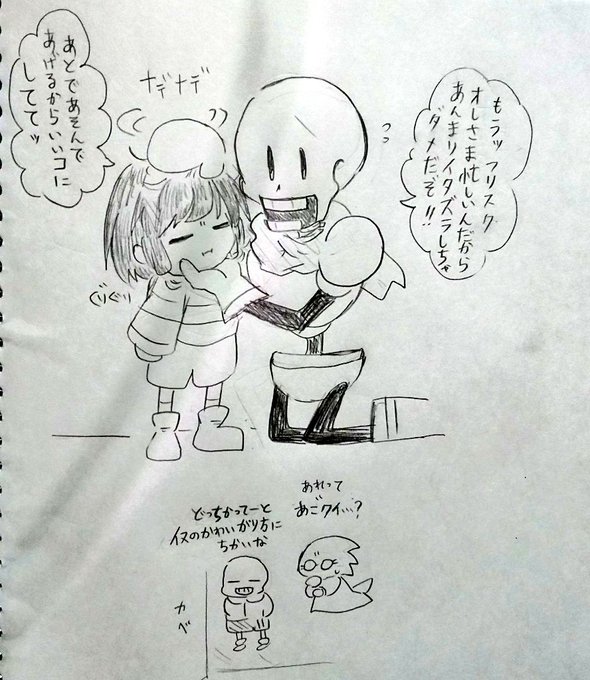 もうッ フリスク
オレさま忙しいんだから
あんまりイタズラしちゃ
ダメだぞ!!
ナデナデ
あとであそんで
あげるからいいコに
しててッ
ぐりぐり
あれって
あごクイ…?
どっちかってーと
イヌのかわいがり方に
ちかいな
カベ